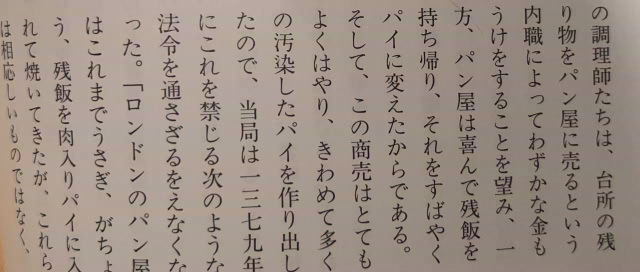 の調理師たちは、台所の残
り物をパン屋に売るという
内職によってわずかな金も
うけをすることを望み、一
方、パン屋は喜んで残飯を
持ち帰り、それをすばやく
パイに変えたからである。
そして、この商売はとても
よくはやり、きわめて多く
の汚染したパイを作り出し
たので、当局は一三七九年
にこれを禁じる次のような
法令を通さざるをえなくな
った。「ロンドンのパン屋
はこれまでうさぎ、がちょ
う、残飯を肉入りパイに入
れて焼いてきたが、これら
は相応しいものではなく、